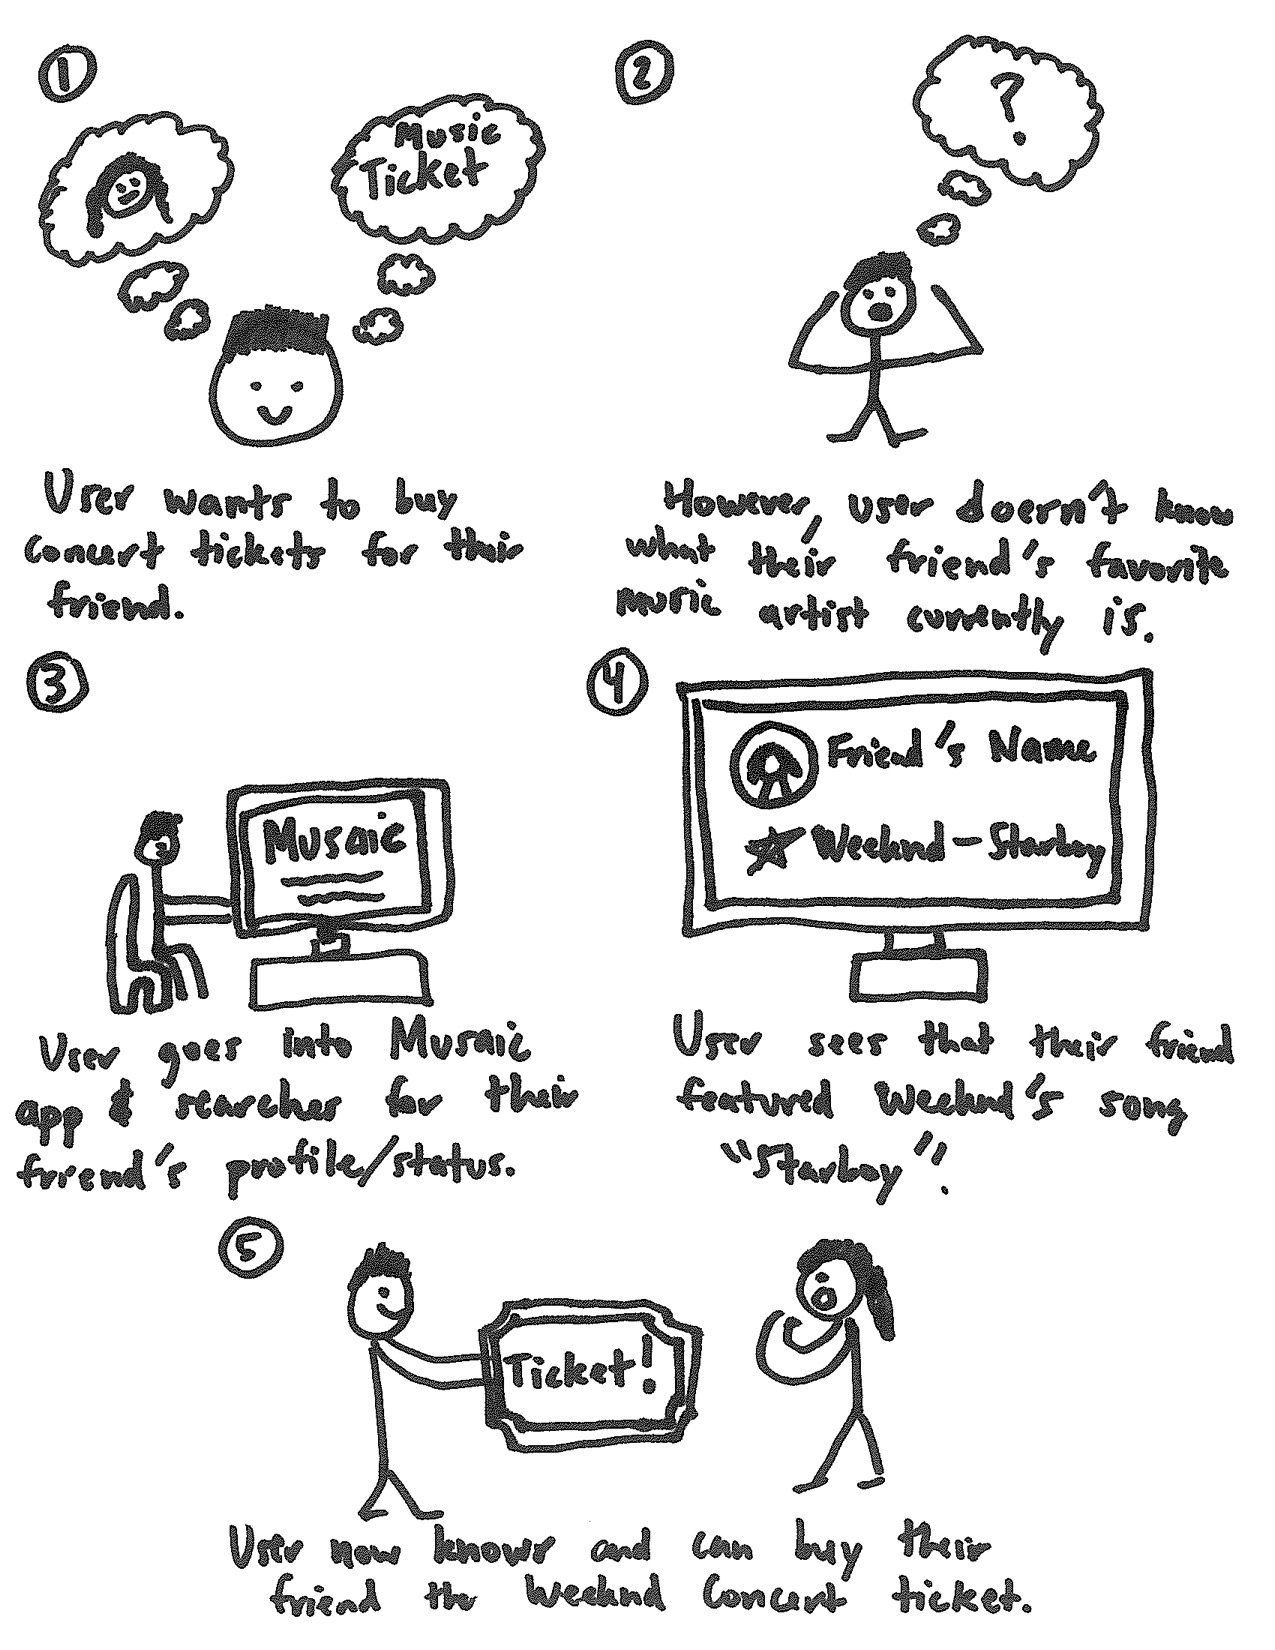 1
Music
Ticket
User wants to buy
concert tickets for their
friend.
2
?
However, user doesn't know
what their friend's favorite
music artist currently is.
3
Musaic
User goes into Musaic
app & searches for their
friend's profile/status.
4
Friend's Name
Weeknd - Starboy
User sees that their friend
featured Weeknd's song
"Starboy".
5
Ticket!
User now knows and can buy their
friend the Weeknd Concert ticket.